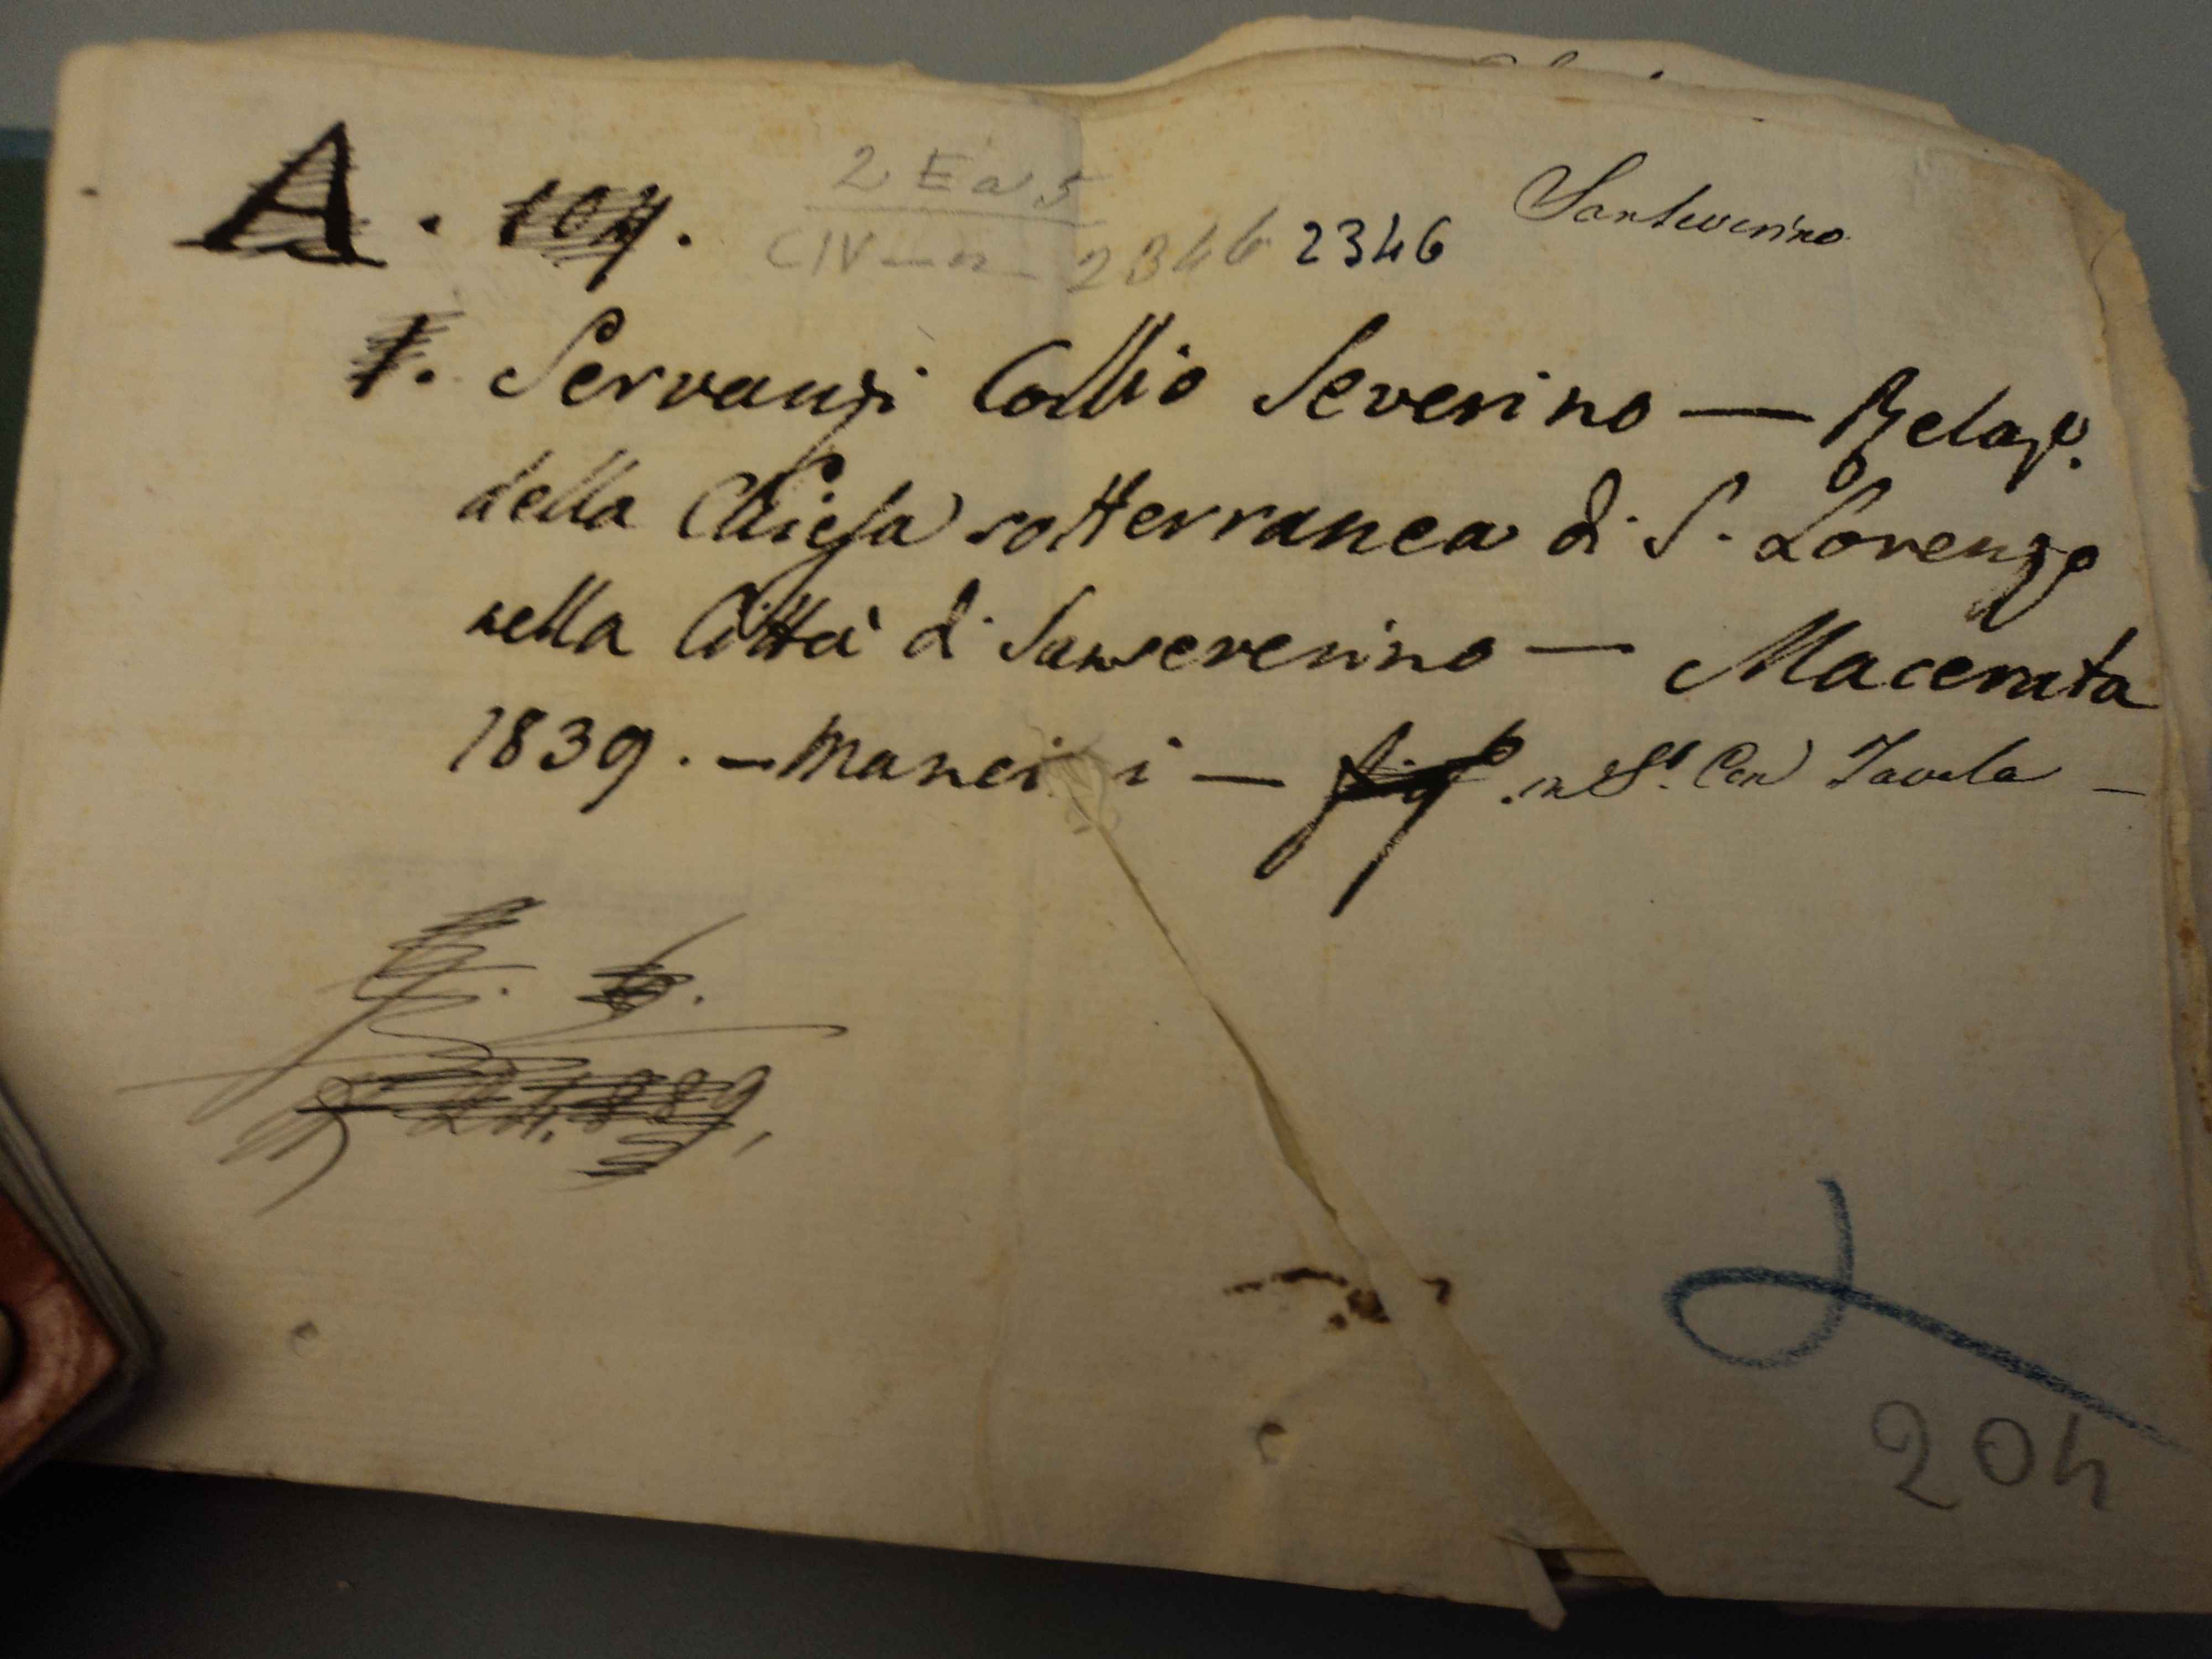 A. 107. 2 E a 5 Sanseverino
CIV - n - 2346 2346
1. Servanzi Collio Severino — Relaz.e
della Chiesa sotterranea di S. Lorenzo
nella Città di Sanseverino — Macerata
1839. — Manci i — fig. in 8°. Con Tavola —
204